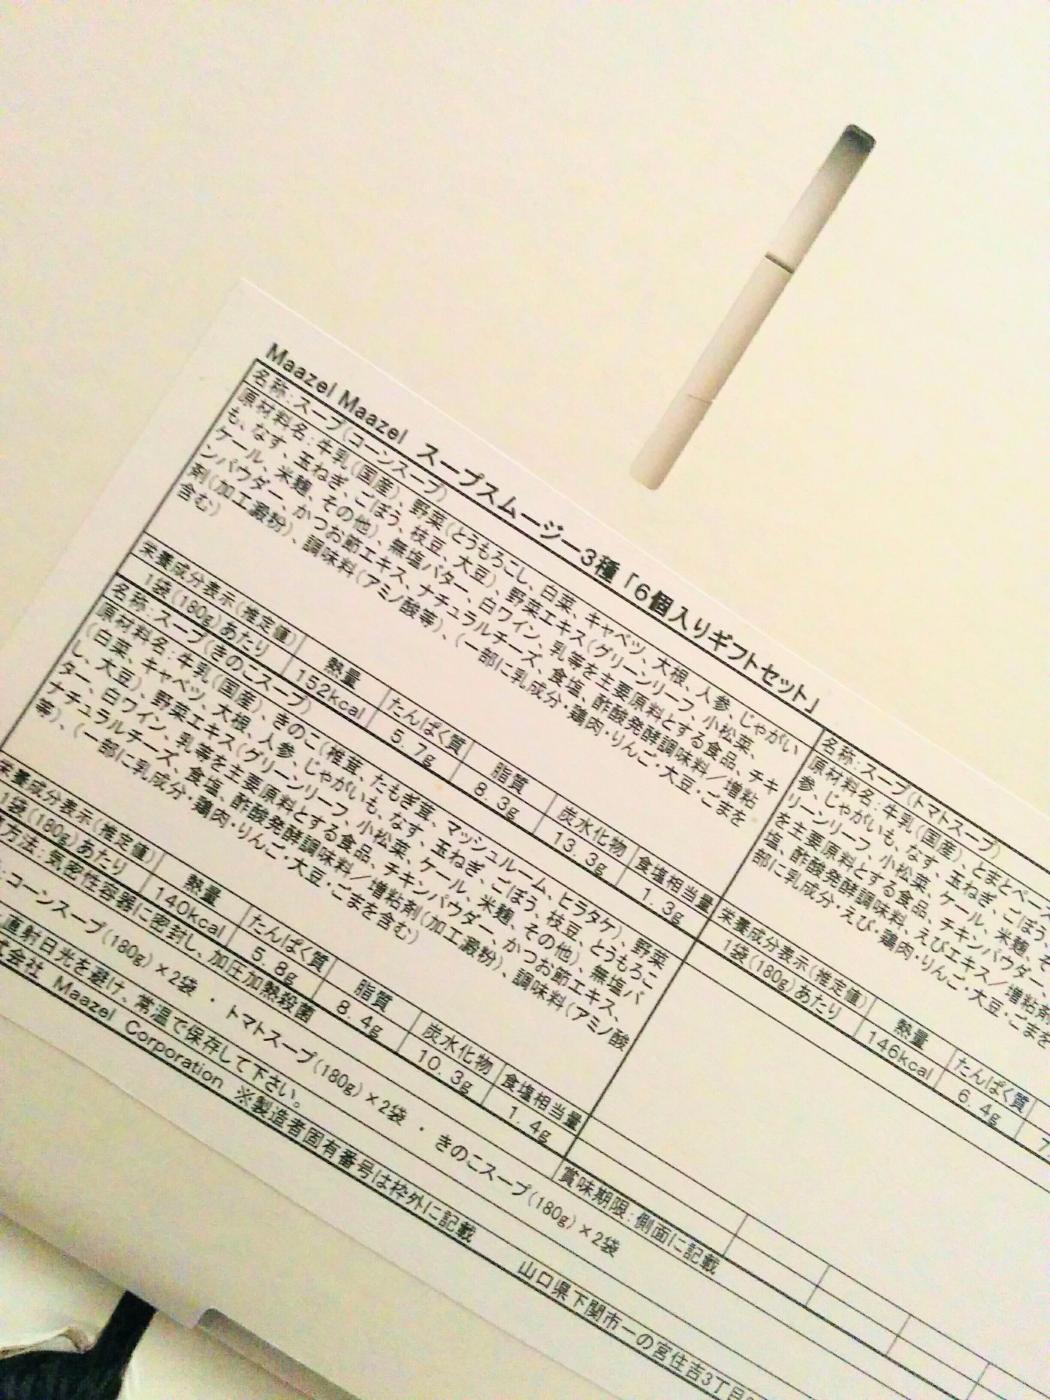 Maazel Maazel スープスムージー3種「6個入りギフトセット」
名称:スープ(コーンスープ)
原材料名:牛乳(国産)、野菜(とうもろこし、白菜、キャベツ、大根、人参、じゃがい
も、なす、玉ねぎ、ごぼう、枝豆、大豆)、野菜エキス(グリーンリーフ、小松菜、
ケール、米麹、その他)、無塩バター、白ワイン、乳等を主要原料とする食品、チキ
ンパウダー、かつお節エキス、ナチュラルチーズ、食塩、酢酸発酵調味料/増粘
剤(加工澱粉)、調味料(アミノ酸等)、(一部に乳成分・鶏肉・りんご・大豆・ごまを
含む)
栄養成分表示(推定値) 熱量 たんぱく質 脂質 炭水化物 食塩相当量
1袋(180g)あたり 152kcal 5.7g 8.3g 13.3g 1.3g
名称:スープ(きのこスープ)
原材料名:牛乳(国産)、きのこ(椎茸、たもぎ茸、マッシュルーム、ヒラタケ)、野菜
(白菜、キャベツ、大根、人参、じゃがいも、なす、玉ねぎ、ごぼう、枝豆、とうもろこ
し、大豆)、野菜エキス(グリーンリーフ、小松菜、ケール、米麹、その他)、無塩バ
ター、白ワイン、乳等を主要原料とする食品、チキンパウダー、かつお節エキス、
ナチュラルチーズ、食塩、酢酸発酵調味料/増粘剤(加工澱粉)、調味料(アミノ酸
等)、(一部に乳成分・鶏肉・りんご・大豆・ごまを含む)
栄養成分表示(推定値) 熱量 たんぱく質 脂質 炭水化物 食塩相当量
1袋(180g)あたり 140kcal 5.8g 8.4g 10.3g 1.4g
名称:スープ(トマトスープ)
原材料名:牛乳(国産)、とまとペース
参、じゃがいも、なす、玉ねぎ、ごぼう、
リーンリーフ、小松菜、ケール、米麹、そ
を主要原料とする食品、チキンパウダー、
塩、酢酸発酵調味料、えびエキス/増粘剤
部に乳成分・えび・鶏肉・りんご・大豆・ごまを
栄養成分表示(推定値) 熱量 たんぱく質
1袋(180g)あたり 146kcal 6.4g 7.
方法:気密性容器に密封し、加圧加熱殺菌
:コーンスープ(180g)×2袋 ・ トマトスープ(180g)×2袋 ・ きのこスープ(180g)×2袋
賞味期限:側面に記載
直射日光を避け、常温で保存して下さい。
式会社 Maazel Corporation ※製造者固有番号は枠外に記載 山口県下関市一の宮住吉3丁目